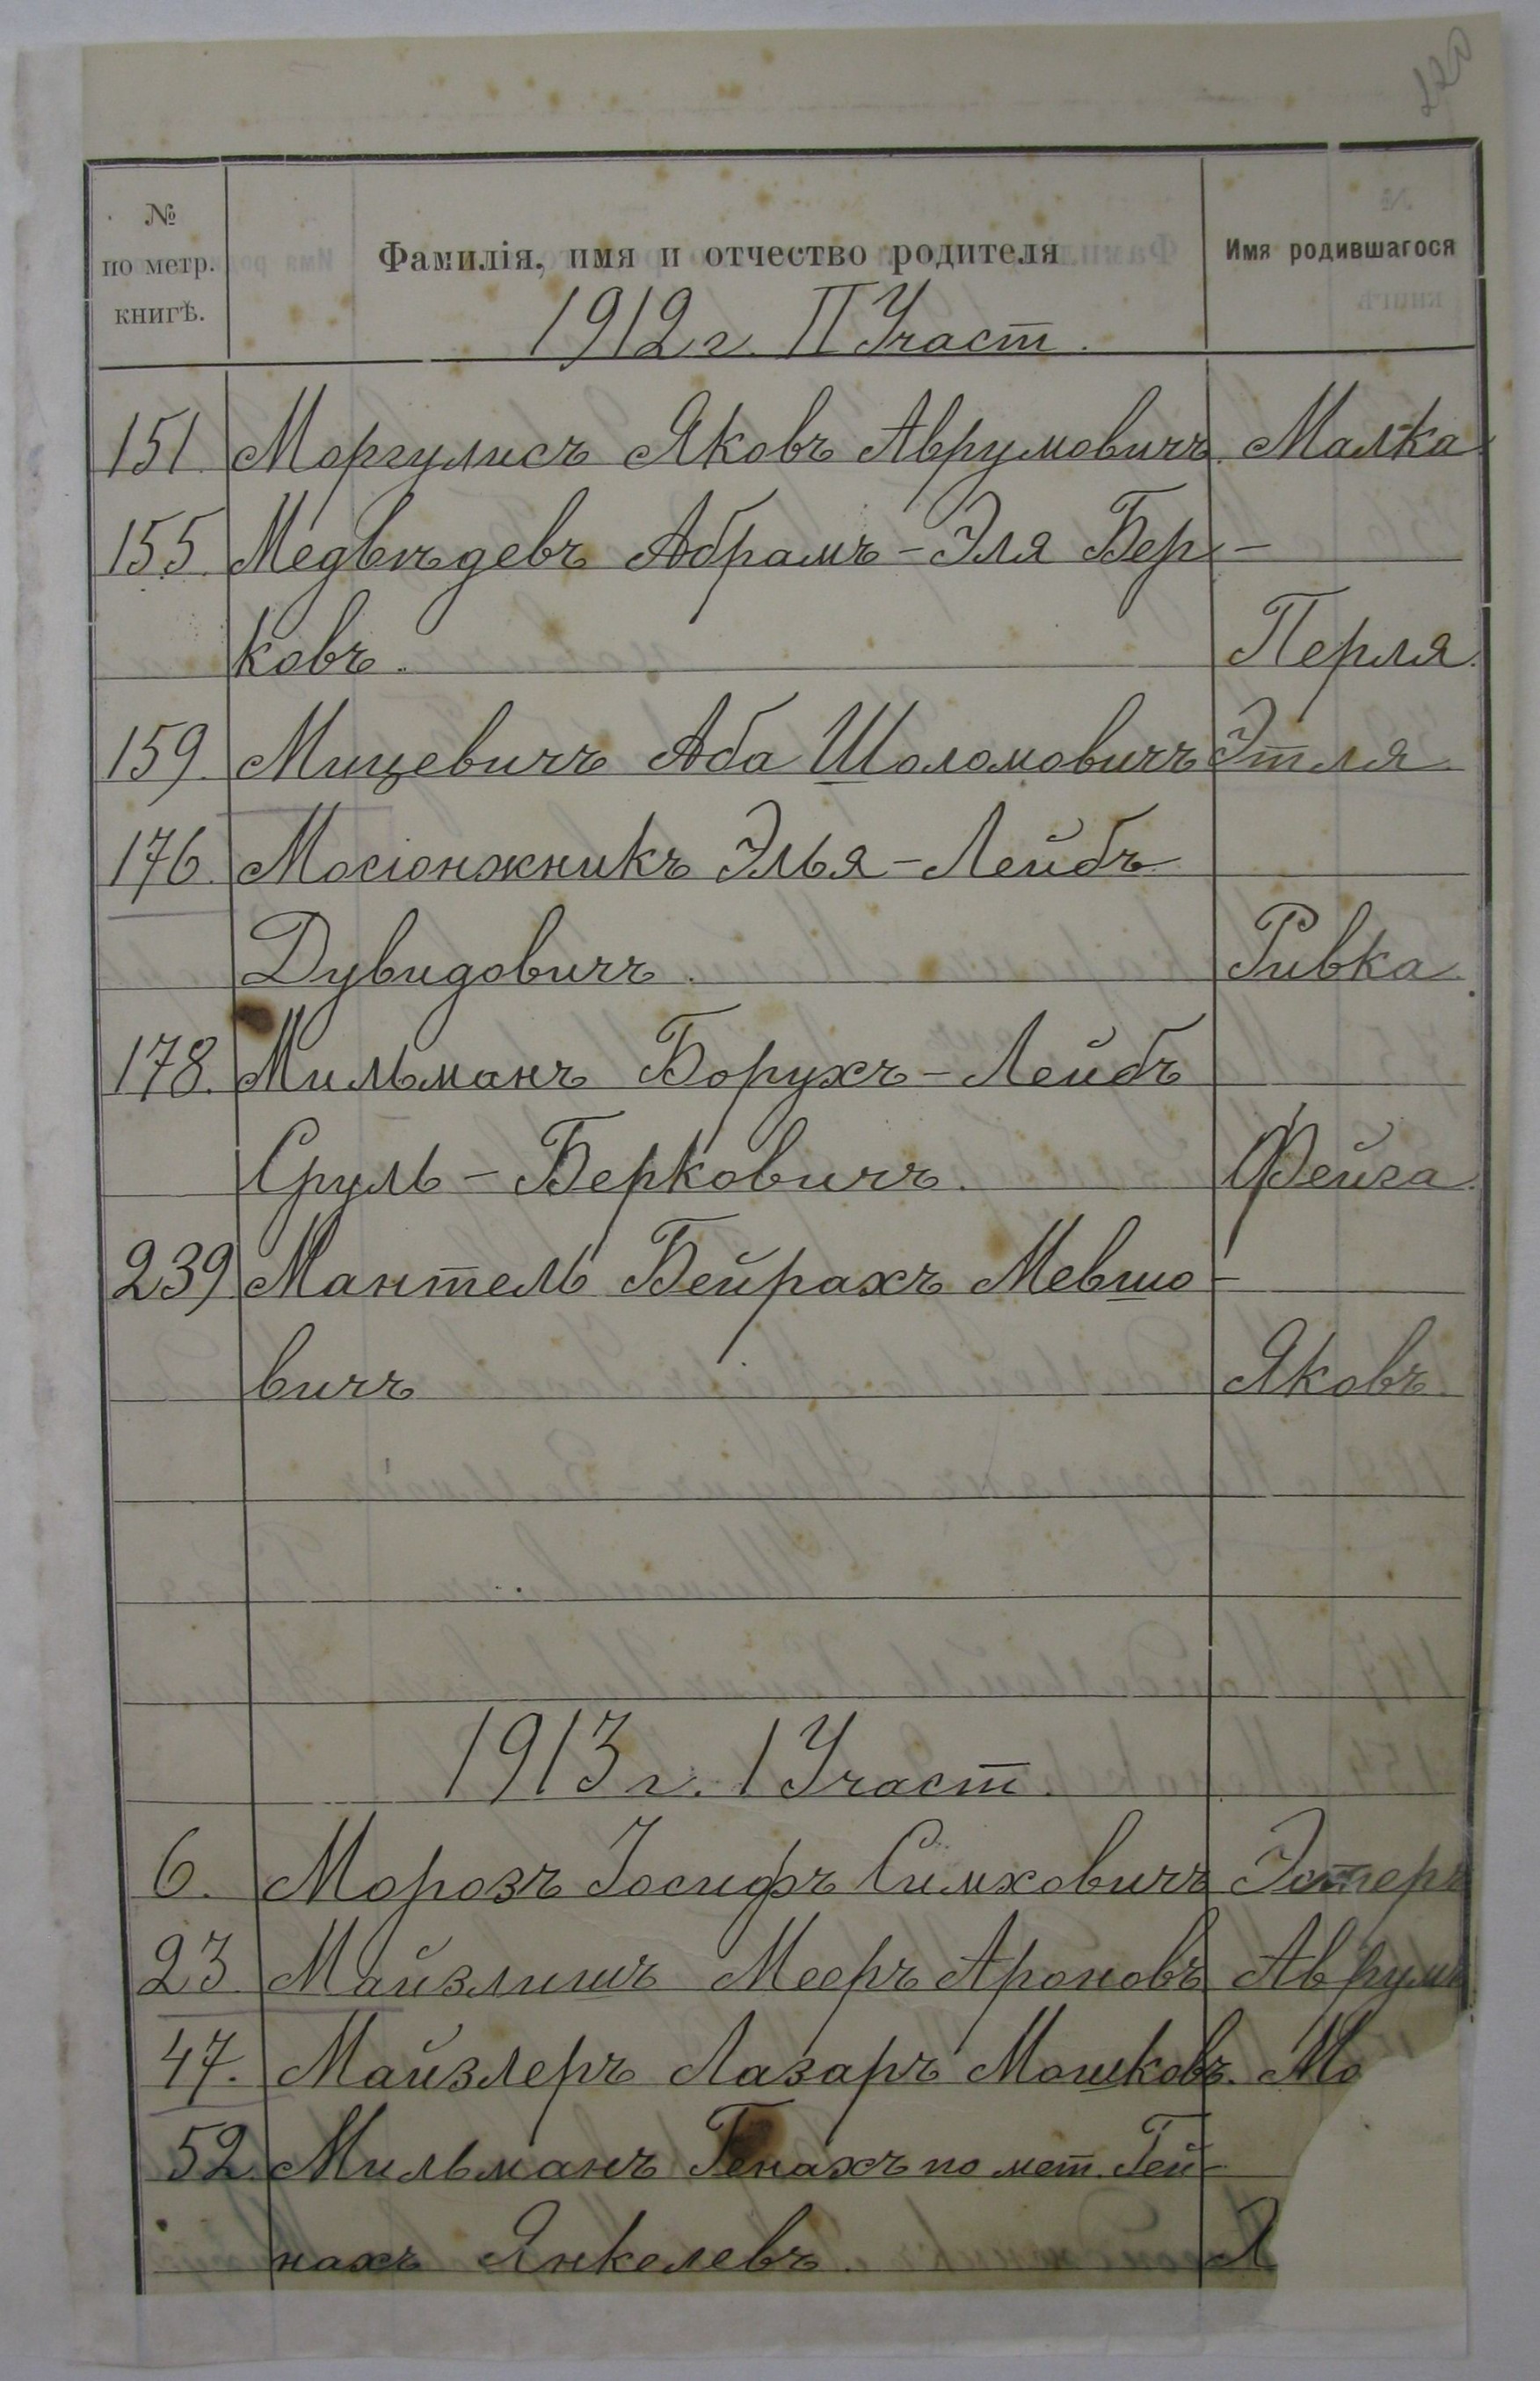 № по метр. книгѣ.
Фамилія, имя и отчество родителя
Имя родившагося
1912 г. II Участ.
151. Моргулисъ Яковъ Аврумовичъ. Малка
155. Медвѣдевъ Абрамъ-Эля Бер-
ковъ. Перля.
159. Мицевичъ Аба Шоломовичъ Этля.
176. Мосіонжникъ Элья-Лейбъ
Дувидовичъ. Ривка.
178. Мильманъ Борухъ-Лейбъ
Сруль-Берковичъ. Фейга.
239 Мантель Бейрахъ Мевшо-
вичъ Яковъ.
1913 г. I Участ.
6. Морозъ Іосифъ Симховичъ Эстеръ
23. Майзлишъ Мееръ Ароновъ Аврумъ
47. Майзлеръ Лазаръ Мошковъ. Мо
52. Мильманъ Генахъ по мет. Гей-
нахъ Янкелевъ. Я